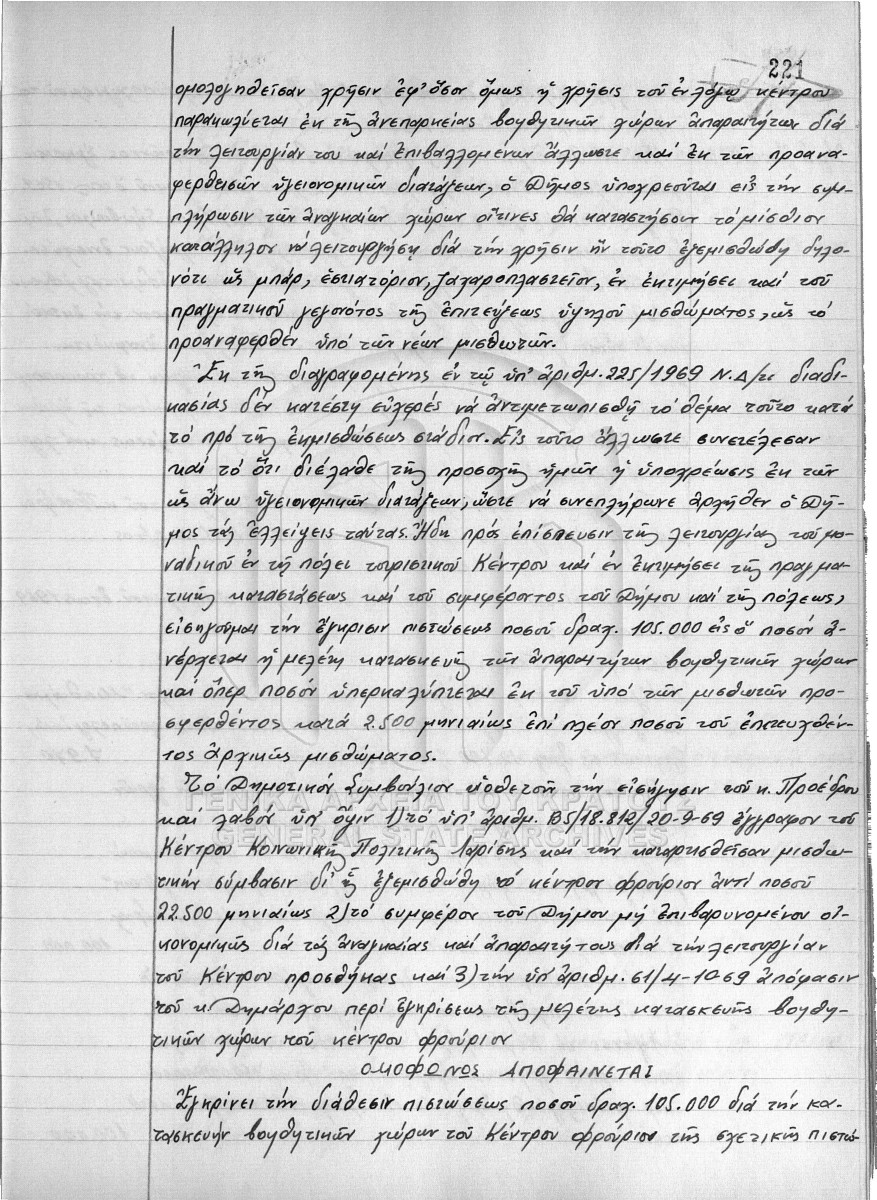 221
ομολογηθεῖσαν χρῆσιν ἐφ' ὅσον ὅμως ἡ χρῆσις τοῦ ἐν λόγῳ κέντρου
παρακωλύεται ἐκ τῆς ἀνεπαρκείας βοηθητικῶν χώρων ἀπαραιτήτων διά
τήν λειτουργίαν του καί ἐπιβαλλομένων ἄλλωστε καί ἐκ τῶν προανα-
φερθεισῶν ὑγειονομικῶν διατάξεων, ὁ Δῆμος ὑποχρεοῦται εἰς τήν συμ-
πλήρωσιν τῶν ἀναγκαίων χώρων οἵτινες θά καταστήσουν τό μίσθιον
κατάλληλον νά λειτουργήσῃ διά τήν χρῆσιν ἥν τοῦτο ἐξεμισθώθη δηλο-
νότι ὡς μπάρ, ἑστιατόριον, ζαχαροπλαστεῖον, ἐν ἐκτιμήσει καί τοῦ
πραγματικοῦ γεγονότος τῆς ἐπιτεύξεως ὑψηλοῦ μισθώματος, ὡς τό
προαναφερθέν ὑπό τῶν νέων μισθωτῶν.
Ἐκ τῆς διαγραφομένης ἐν τῷ ὑπ' ἀριθμ. 225/1969 Ν.Δ/τι διαδι-
κασίας δέν κατέστη εὐχερές νά ἀντιμετωπισθῇ τό θέμα τοῦτο κατά
τό πρό τῆς ἐκμισθώσεως στάδιον. Εἰς τοῦτο ἄλλωστε συνετέλεσαν
καί τό ὅτι διέλαθε τῆς προσοχῆς ἡμῶν ἡ ὑποχρέωσις ἐκ τῶν
ὡς ἄνω ὑγειονομικῶν διατάξεων, ὥστε νά συνεπλήρωνε ἀρχῆθεν ὁ Δῆ-
μος τάς ἐλλείψεις ταύτας. Ἤδη πρός ἐπίσπευσιν τῆς λειτουργίας τοῦ μο-
ναδικοῦ ἐν τῇ πόλει τουριστικοῦ Κέντρου καί ἐν ἐκτιμήσει τῆς πραγμα-
τικῆς καταστάσεως καί τοῦ συμφέροντος τοῦ Δήμου καί τῆς πόλεως,
εἰσηγοῦμαι τήν ἔγκρισιν πιστώσεως ποσοῦ δραχ. 105.000 εἰς ὅ ποσόν ἀ-
νέρχεται ἡ μελέτη κατασκευῆς τῶν ἀπαραιτήτων βοηθητικῶν χώρων
καί ὅπερ ποσόν ὑπερκαλύπτεται ἐκ τοῦ ὑπό τῶν μισθωτῶν προ-
σφερθέντος κατά 2.500 μηνιαίως ἐπί πλέον ποσοῦ τοῦ ἐπιτευχθέν-
τος ἀρχικῶς μισθώματος.
Τό Δημοτικόν Συμβούλιον υἱοθετοῦν τήν εἰσήγησιν τοῦ κ. Προέδρου
καί λαβόν ὑπ' ὄψιν 1) τό ὑπ' ἀριθμ. Β5/18.812/20-9-69 ἔγγραφον τοῦ
Κέντρου Κοινωνικῆς Πολιτικῆς Λαρίσης καί τήν καταρτισθεῖσαν μισθω-
τικήν σύμβασιν δι' ἧς ἐξεμισθώθη τό κέντρον φρούριον ἀντί ποσοῦ
22.500 μηνιαίως 2) τό συμφέρον τοῦ Δήμου μή ἐπιβαρυνομένου οἰ-
κονομικῶς διά τάς ἀναγκαίας καί ἀπαραιτήτους διά τήν λειτουργίαν
τοῦ Κέντρου προσθήκας καί 3) τήν ὑπ' ἀριθμ. 61/4-10-69 ἀπόφασιν
τοῦ κ. Δημάρχου περί ἐγκρίσεως τῆς μελέτης κατασκευῆς βοηθη-
τικῶν χώρων τοῦ κέντρου φρούριον
ΟΜΟΦΩΝΩΣ ΑΠΟΦΑΙΝΕΤΑΙ
Ἐγκρίνει τήν διάθεσιν πιστώσεως ποσοῦ δραχ. 105.000 διά τήν κα-
τασκευήν βοηθητικῶν χώρων τοῦ Κέντρου φρούριον τῆς σχετικῆς πιστώ-
ΓΕΝΙΚΑ ΑΡΧΕΙΑ ΤΟΥ ΚΡΑΤΟΥΣ
GENERAL STATE ARCHIVES